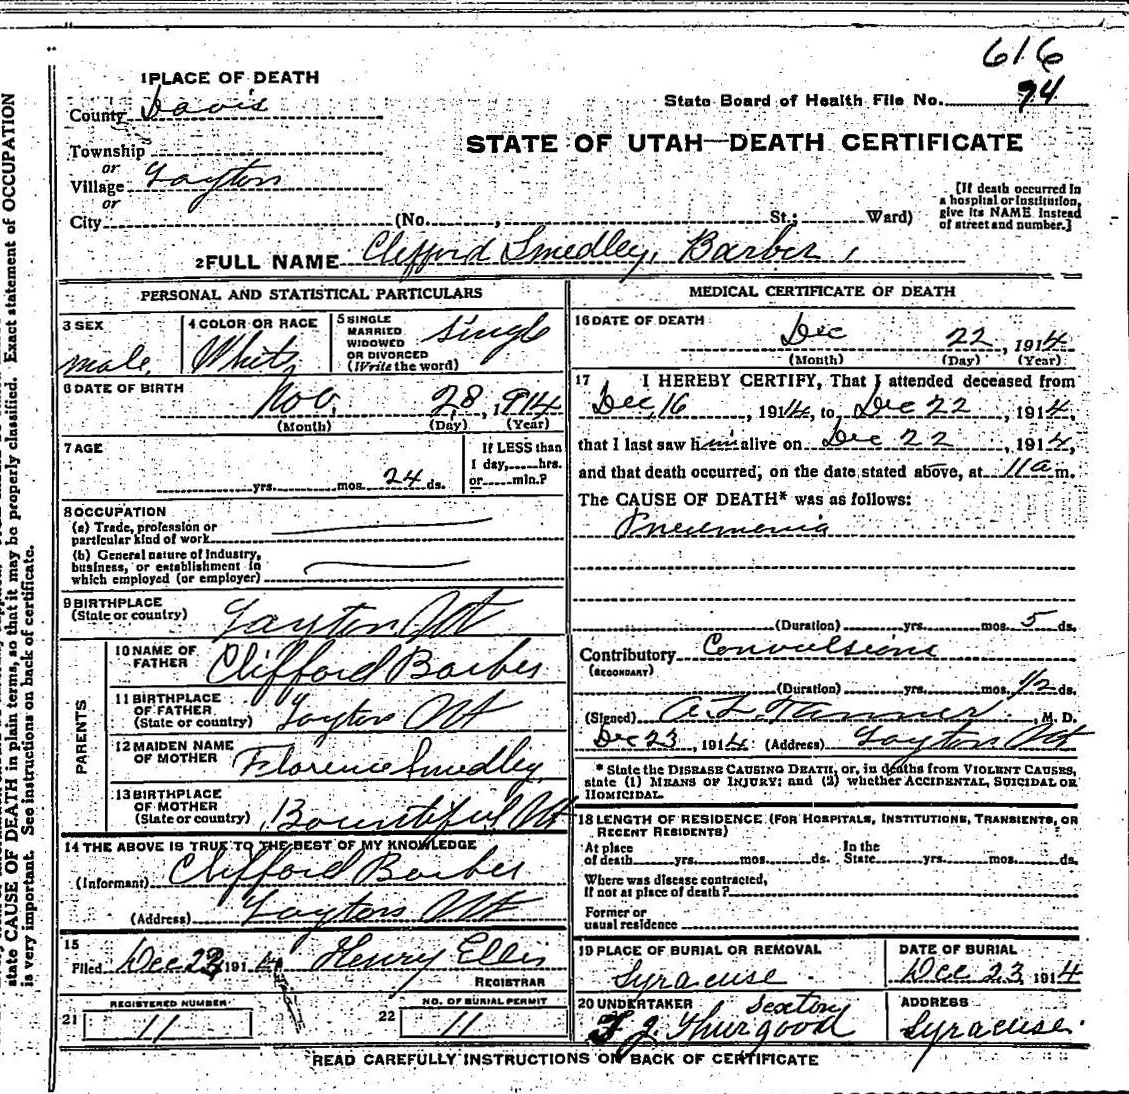 616
State Board of Health File No. 94
1 PLACE OF DEATH
County Davis
STATE OF UTAH—DEATH CERTIFICATE
Township
or
Village Layton
or
City (No. , St.; Ward)
[If death occurred in
a hospital or institution,
give its NAME instead
of street and number.]
2 FULL NAME Clifford Smedley Barber
PERSONAL AND STATISTICAL PARTICULARS
3 SEX
male
4 COLOR OR RACE
White
5 SINGLE
MARRIED
WIDOWED
OR DIVORCED
(Write the word)
single
6 DATE OF BIRTH
Nov. 28, 1914
(Month) (Day) (Year)
7 AGE
yrs. mos. 24 ds.
If LESS than
1 day, hrs.
or min.?
8 OCCUPATION
(a) Trade, profession or
particular kind of work
(b) General nature of industry,
business, or establishment in
which employed (or employer)
9 BIRTHPLACE
(State or country) Layton, Ut
PARENTS
10 NAME OF
FATHER Clifford Barber
11 BIRTHPLACE
OF FATHER
(State or country) Layton Ut
12 MAIDEN NAME
OF MOTHER Florence Smedley
13 BIRTHPLACE
OF MOTHER
(State or country) Bountiful Ut
14 THE ABOVE IS TRUE TO THE BEST OF MY KNOWLEDGE
(Informant) Clifford Barber
(Address) Layton Ut
15
Filed Dec 23, 1914 Henry Ellis
REGISTRAR
21 REGISTERED NUMBER
11
22 NO. OF BURIAL PERMIT
11
MEDICAL CERTIFICATE OF DEATH
16 DATE OF DEATH
Dec 22, 1914
(Month) (Day) (Year)
17 I HEREBY CERTIFY, That I attended deceased from
Dec 16, 1914, to Dec 22, 1914,
that I last saw him alive on Dec 22, 1914,
and that death occurred, on the date stated above, at 11 a m.
The CAUSE OF DEATH* was as follows:
Pneumonia
(Duration) yrs. mos. 5 ds.
Contributory Convulsions
(SECONDARY)
(Duration) yrs. mos. 1/2 ds.
(Signed) A. L. Tanner, M. D.
Dec 23, 1914 (Address) Layton Ut
* State the DISEASE CAUSING DEATH, or, in deaths from VIOLENT CAUSES,
state (1) MEANS OF INJURY; and (2) whether ACCIDENTAL, SUICIDAL OR
HOMICIDAL.
18 LENGTH OF RESIDENCE (FOR HOSPITALS, INSTITUTIONS, TRANSIENTS, OR
RECENT RESIDENTS)
At place
of death yrs. mos. ds.
In the
State yrs. mos. ds.
Where was disease contracted,
if not at place of death?
Former or
usual residence
19 PLACE OF BURIAL OR REMOVAL
Syracuse
DATE OF BURIAL
Dec 23, 1914
20 UNDERTAKER sexton
F J. Thurgood
ADDRESS
Syracuse
READ CAREFULLY INSTRUCTIONS ON BACK OF CERTIFICATE
state CAUSE OF DEATH in plain terms, so that it may be properly classified. Exact statement of OCCUPATION
is very important. See instructions on back of certificate.